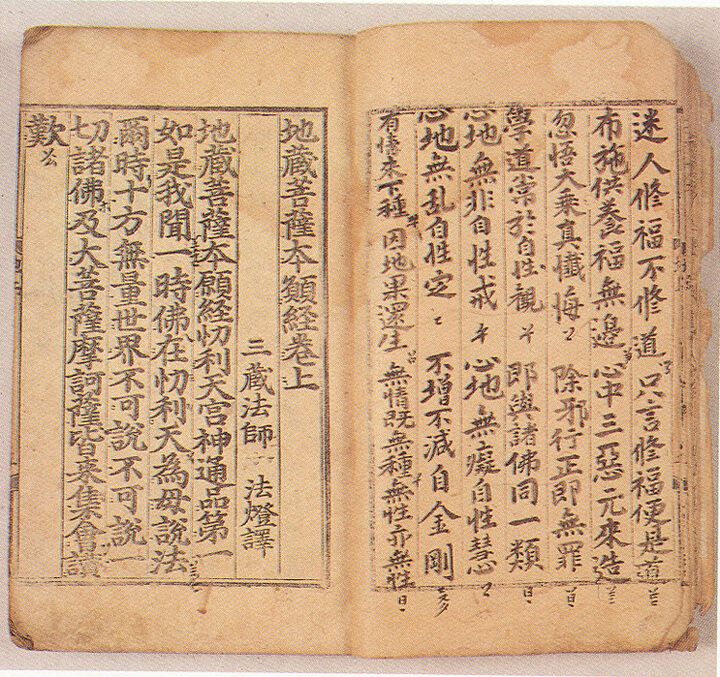 迷人修福不修道 只言修福便是道
布施供養福無邊 心中三惡元來造
忽悟大乘真懺悔 除邪行正即無罪
學道常於自性觀 即與諸佛同一類
心地無非自性戒 心地無癡自性慧
心地無乱自性定 不增不減自金剛
有情来下種 因地果還生 無情既無種 無性亦無性
地藏菩薩本願經卷上
三藏法師 法燈譯
地藏菩薩本願經忉利天宮神通品第一
如是我聞一時佛在忉利天為母說法
爾時十方無量世界不可說不可說一
切諸佛及大菩薩摩訶薩皆來集會讚
歎